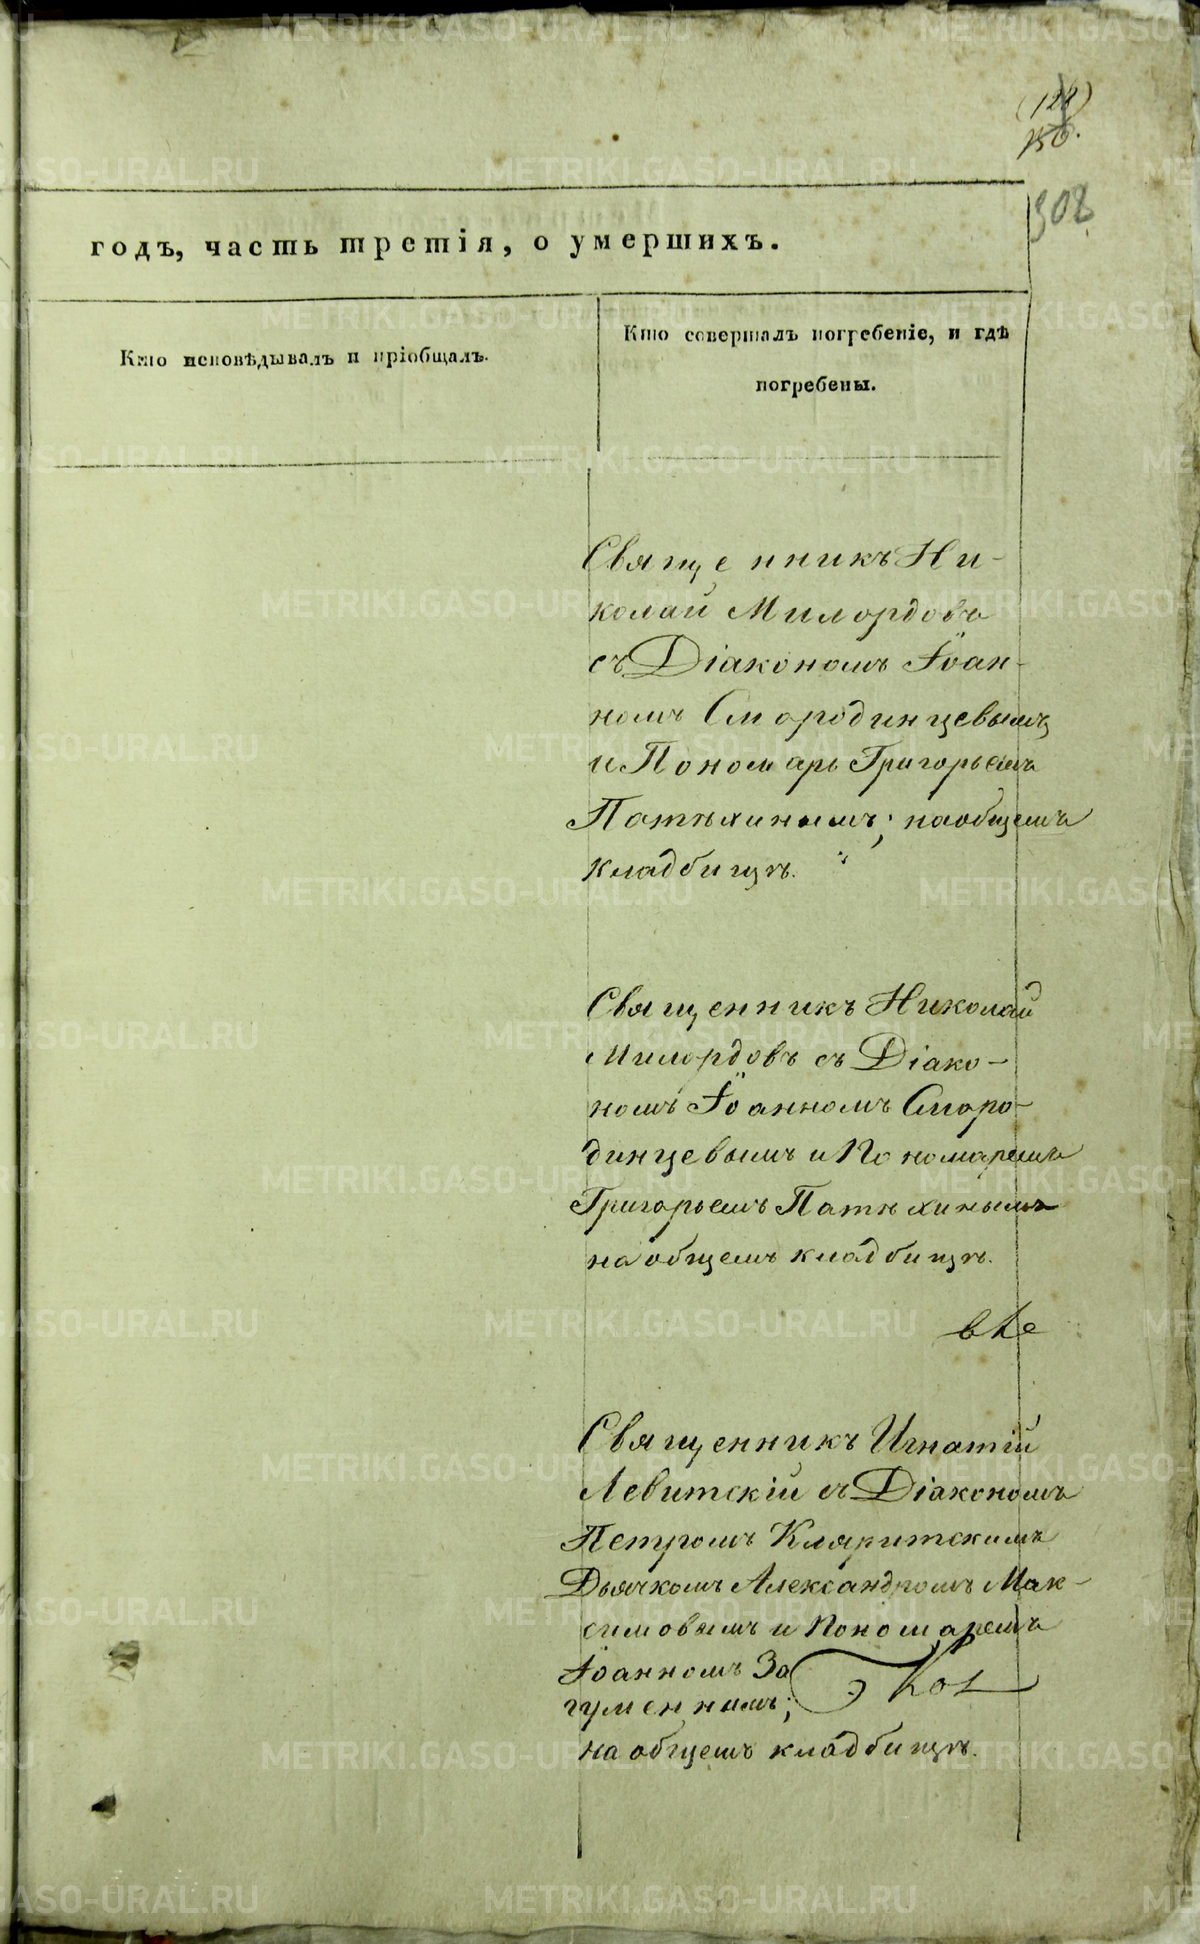 (129)
150.
308
годъ, часть третія, о умершихъ.
Кто исповѣдывалъ и пріобщалъ.
Кто совершалъ погребеніе, и гдѣ
погребены.
Священникъ Ни-
колай Милордовъ
съ Діакономъ Іоан-
номъ Смородинцевымъ
и Пономарь Григорьемъ
Патѣхинымъ; на общемъ
кладбищѣ.
Священникъ Николай
Милордовъ съ Діако-
номъ Іоанномъ Сморо-
динцевымъ и Пономаремъ
Григорьемъ Патѣхинымъ
на общемъ кладбищѣ.
Священникъ Игнатій
Левитскій съ Діакономъ
Петромъ Кляритскимъ
Дьячкомъ Александромъ Мак-
симовымъ и Пономаремъ
Іоанномъ За
гуменнымъ;
на общемъ кладбищѣ.
METRIKI.GASO-URAL.RU